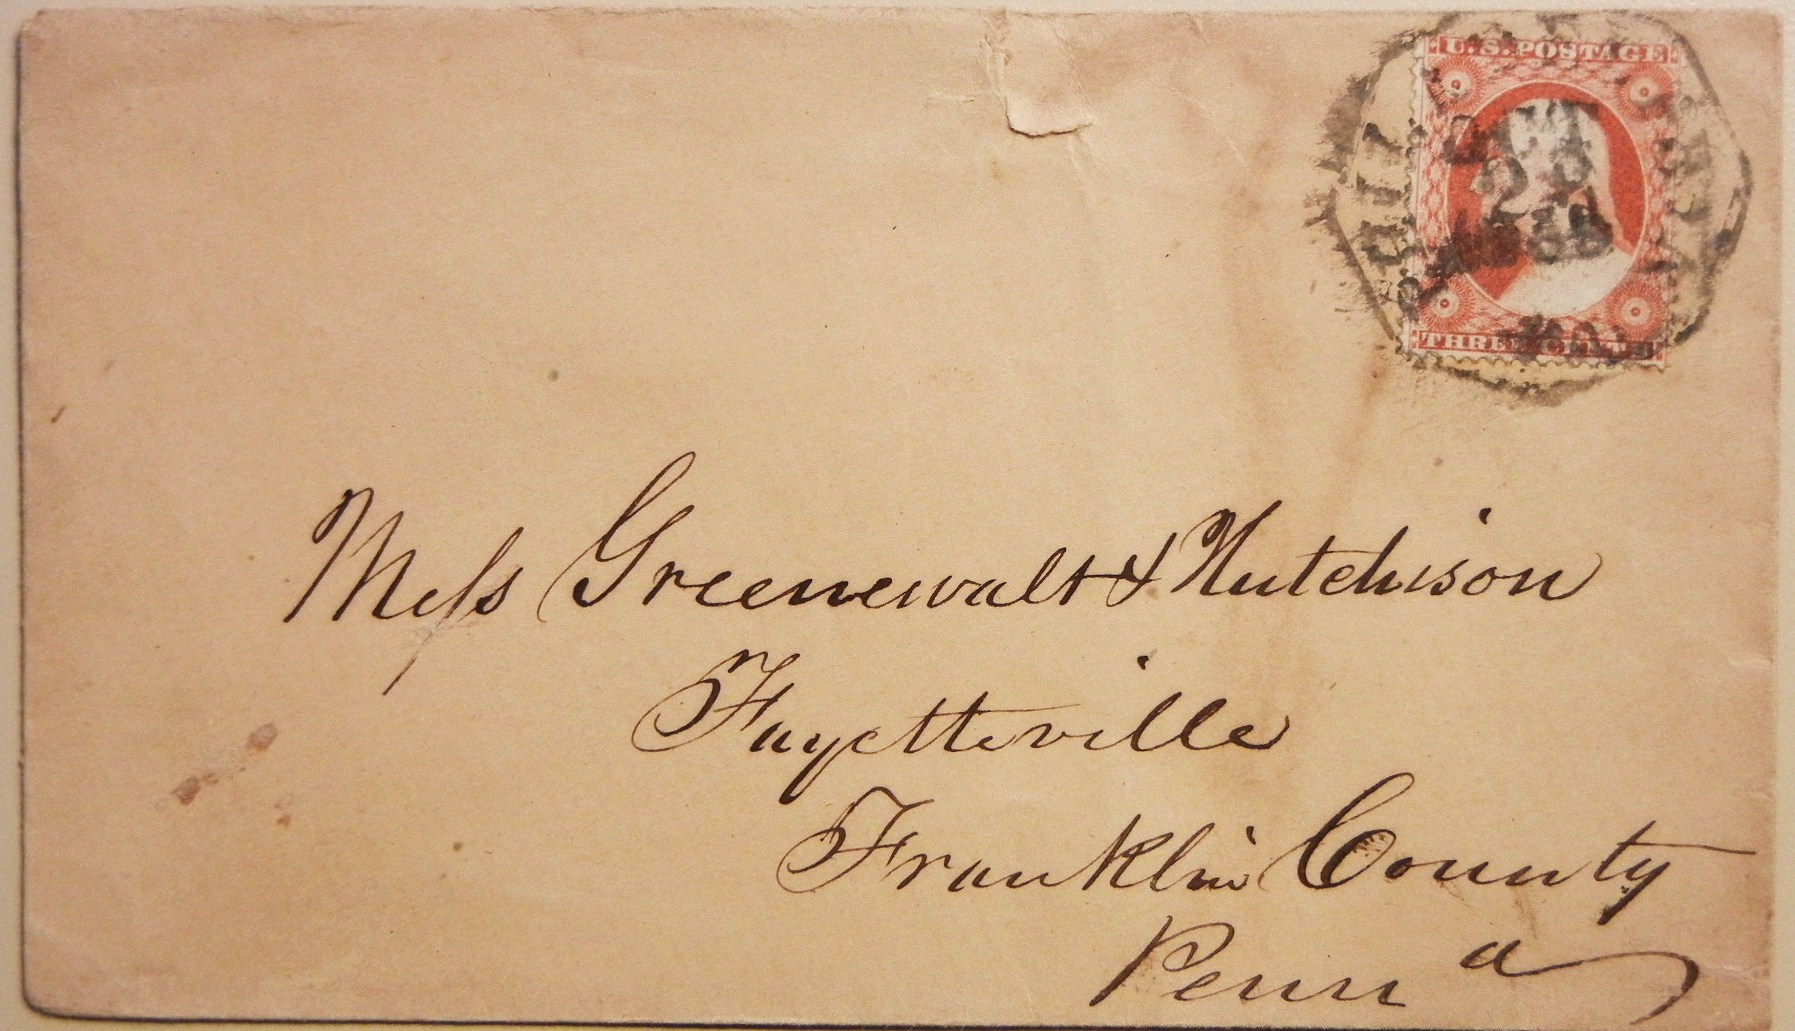 U.S. POSTAGE
OCT
23
THREE CENTS
Mess Greenewalt & Hutchison
Fayetteville
Franklin County
Penn a